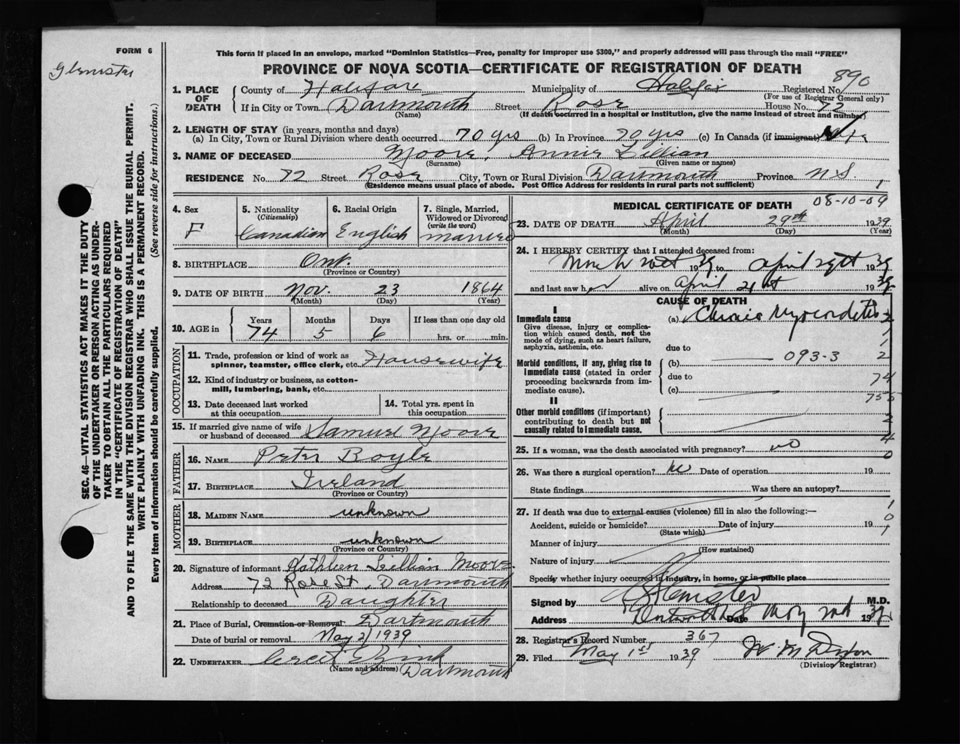 FORM 6
This form if placed in an envelope, marked "Dominion Statistics—Free, penalty for improper use $300," and properly addressed will pass through the mail "FREE"
PROVINCE OF NOVA SCOTIA—CERTIFICATE OF REGISTRATION OF DEATH
890
1. PLACE OF DEATH County of Halifax Municipality of Halifax Registered No.
(For use of Registrar General only)
If in City or Town Dartmouth Street Rose House No. 72
(Name) (If death occurred in a hospital or institution, give the name instead of street and number)
2. LENGTH OF STAY (in years, months and days)
(a) In City, Town or Rural Division where death occurred 70 yrs (b) In Province 70 yrs (c) In Canada (if immigrant)
3. NAME OF DECEASED Moore, Annie Lillian
(Surname) (Given name or names)
RESIDENCE No. 72 Street Rose City, Town or Rural Division Dartmouth Province N.S.
(Residence means usual place of abode. Post Office Address for residents in rural parts not sufficient)
4. Sex F
5. Nationality (Citizenship) Canadian
6. Racial Origin English
7. Single, Married, Widowed or Divorced (write the word) married
8. BIRTHPLACE Ont.
(Province or Country)
9. DATE OF BIRTH Nov. 23 1864
(Month) (Day) (Year)
10. AGE in Years Months Days If less than one day old
74 5 6 hrs. or min.
OCCUPATION
11. Trade, profession or kind of work as spinner, teamster, office clerk, etc. Housewife
12. Kind of industry or business, as cotton-mill, lumbering, bank, etc.
13. Date deceased last worked at this occupation
14. Total yrs. spent in this occupation
15. If married give name of wife or husband of deceased Samuel Moore
FATHER
16. NAME Peter Boyle
17. BIRTHPLACE Ireland
(Province or Country)
MOTHER
18. MAIDEN NAME unknown
19. BIRTHPLACE unknown
(Province or Country)
20. Signature of informant Kathleen Lillian Moore
Address 72 Rose St. Dartmouth
Relationship to deceased Daughter
21. Place of Burial, Cremation or Removal Dartmouth
Date of burial or removal May 2/1939
22. UNDERTAKER
(Name and address) Dartmouth
MEDICAL CERTIFICATE OF DEATH 08-10-09
23. DATE OF DEATH April 29th 1939
(Month) (Day) (Year)
24. I HEREBY CERTIFY that I attended deceased from:
1939 to April 29th 1939
and last saw her alive on April 21st 1939
CAUSE OF DEATH
I
Immediate cause (a)
Give disease, injury or complication which caused death, not the mode of dying, such as heart failure, asphyxia, asthenia, etc.
due to
Morbid conditions, if any, giving rise to immediate cause (stated in order proceeding backwards from immediate cause).
(b) 093-3
due to
(c)
II
Other morbid conditions (if important) contributing to death but not causally related to immediate cause.
25. If a woman, was the death associated with pregnancy? no
26. Was there a surgical operation? no Date of operation 19
State findings Was there an autopsy?
27. If death was due to external causes (violence) fill in also the following:—
Accident, suicide or homicide? Date of injury 19
(State which)
Manner of injury
(How sustained)
Nature of injury
Specify whether injury occurred in industry, in home, or in public place
Signed by M.D.
Address Date May 2nd 1939
28. Registrar's Record Number 367
29. Filed May 1st 1939
(Division Registrar)
SEC. 46—VITAL STATISTICS ACT MAKES IT THE DUTY
OF THE UNDERTAKER OR PERSON ACTING AS UNDER-
TAKER TO OBTAIN ALL THE PARTICULARS REQUIRED
IN THE "CERTIFICATE OF REGISTRATION OF DEATH"
AND TO FILE THE SAME WITH THE DIVISION REGISTRAR WHO SHALL ISSUE THE BURIAL PERMIT.
WRITE PLAINLY WITH UNFADING INK. THIS IS A PERMANENT RECORD.
Every item of information should be carefully supplied. (See reverse side for instructions.)